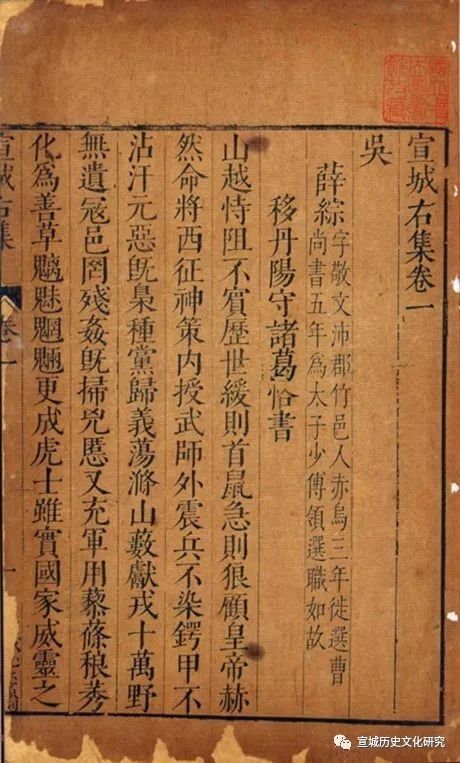 宣城右集卷一
吳
薛綜字敬文沛郡竹邑人赤烏三年徙選曹
尚書五年爲太子少傅領選職如故
移丹陽守諸葛恪書
山越恃阻不賓歷世緩則首鼠急則狼顧皇帝赫
然命將西征神策内授武師外震兵不染鍔甲不
沾汗元惡旣梟種黨歸義蕩滌山藪獻戎十萬野
無遺寇邑罔殘姦旣掃兇慝又充軍用藜蓧稂莠
化爲善草魑魅魍魎更成虎士雖實國家威靈之
宣城右集
卷一
一
宣城历史文化研究